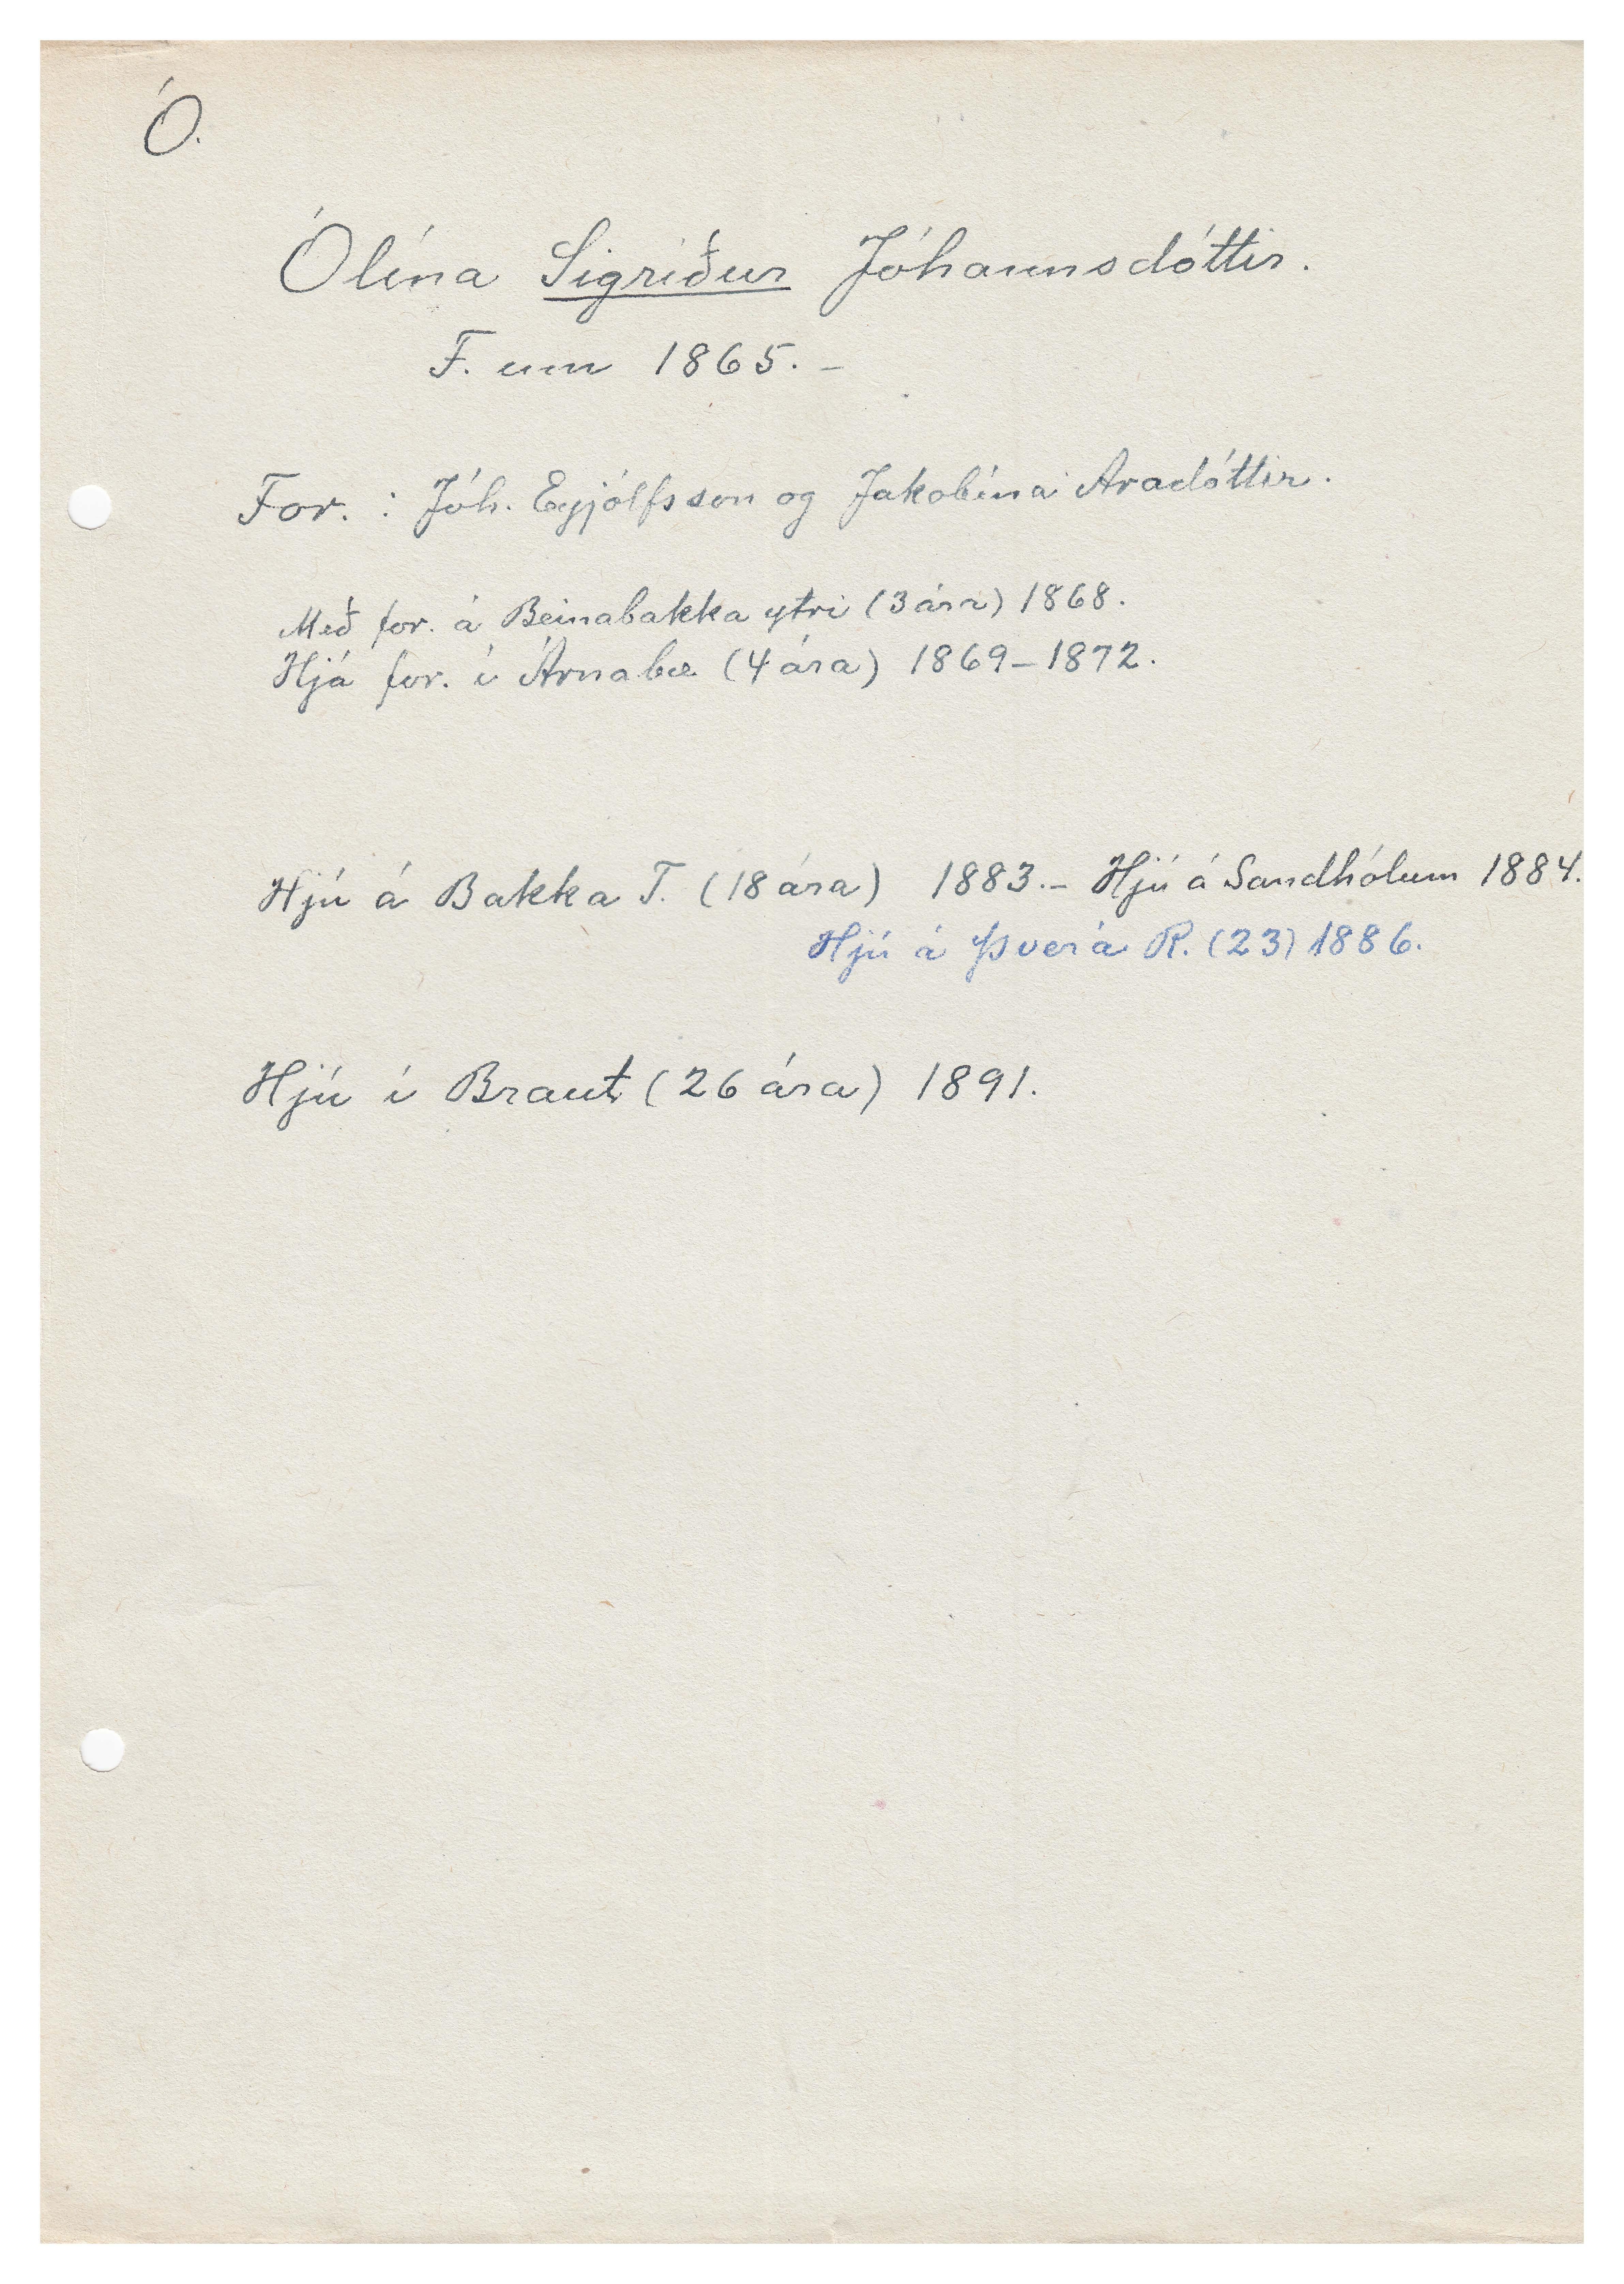 Ó.
Ólína Sigríður Jóhannsdóttir.
F. um 1865. –
For. : Jóh. Eyjólfsson og Jakobína Aradóttir.
Með for. á Beinabakka ytri (3 ára) 1868.
Hjá for. í Árnabæ (4 ára) 1869–1872.
Hjú á Bakka T. (18 ára) 1883.– Hjú á Sandhólum 1884.
Hjú á Þverá R. (23) 1886.
Hjú í Braut (26 ára) 1891.